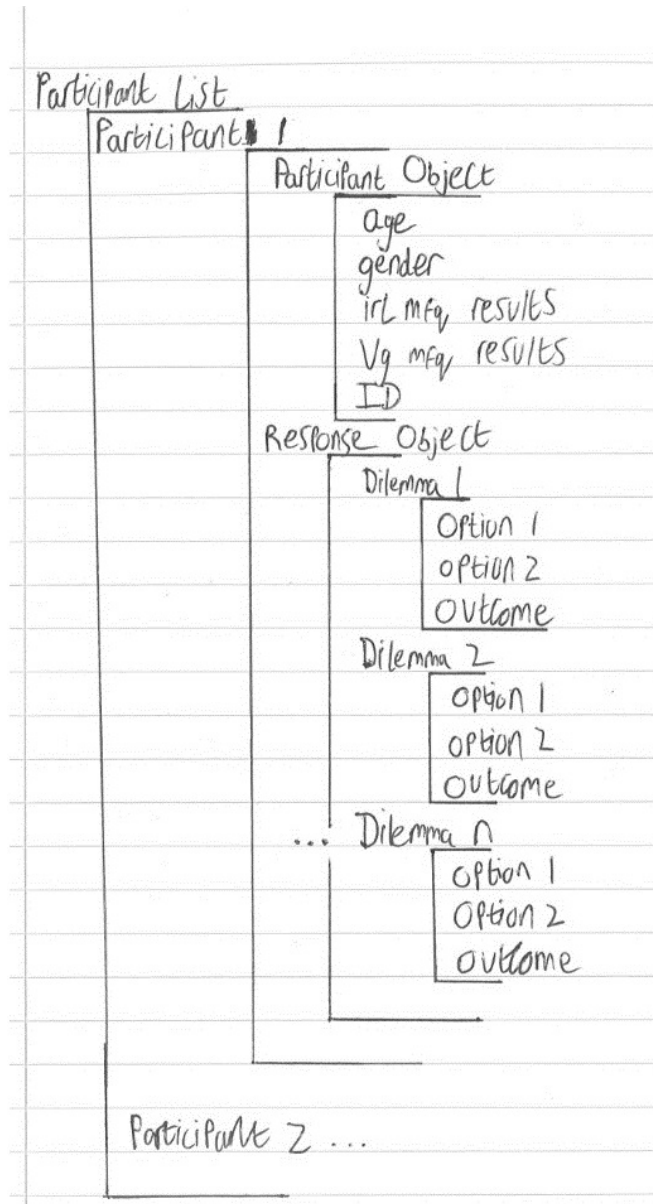 Participant List
Participant 1
Participant Object
age
gender
irl mfq results
Vg mfq results
ID
Response Object
Dilemma 1
Option 1
option 2
Outcome
Dilemma 2
option 1
option 2
outcome
... Dilemma n
option 1
Option 2
outcome
Participant 2 ...